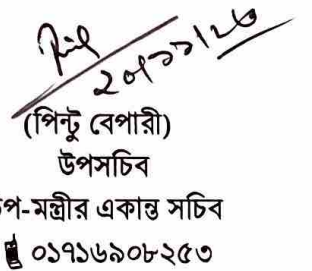 ২০/১১/২৩
(পিন্টু বেপারী)
উপসচিব
উপ-মন্ত্রীর একান্ত সচিব
০১৭১৬৯০৮২৫৩